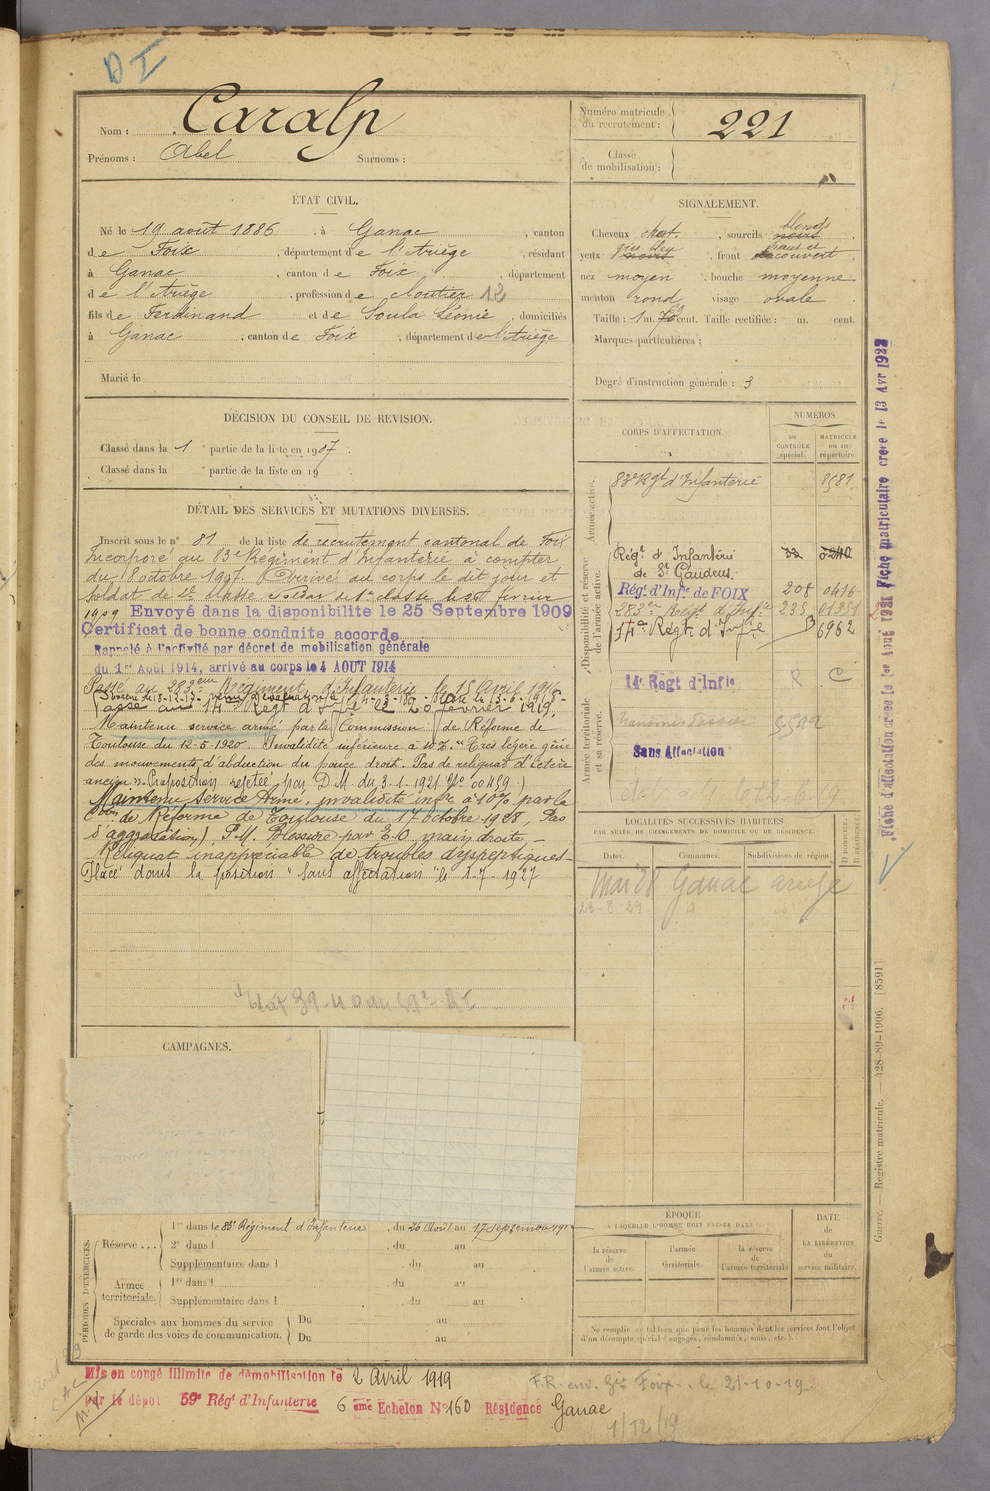 D I
Nom : Caralp
Prénoms : Abel Surnoms :
Numéro matricule du recrutement : 221
Classe de mobilisation :
ÉTAT CIVIL.
Né le 19 août 1886, à Ganac, canton
de Foix, département de l'Ariège, résidant
à Ganac, canton de Foix, département
de l'Ariège, profession de Cloutier 12
fils de Ferdinand et de Soula Léonie, domiciliés
à Ganac, canton de Foix, département de l'Ariège
Marié le
SIGNALEMENT.
Cheveux chat, sourcils blonds
yeux gris bleu, front haut et découvert
nez moyen, bouche moyenne
menton rond, visage ovale
Taille : 1 m. cent. Taille rectifiée : m. cent.
Marques particulières :
Degré d'instruction générale : 3
DÉCISION DU CONSEIL DE REVISION.
Classé dans la 1e partie de la liste en 1907.
Classé dans la e partie de la liste en 19
DÉTAIL DES SERVICES ET MUTATIONS DIVERSES.
Inscrit sous le n° 81 de la liste de recrutement cantonal de Foix
Incorporé au 83e Régiment d'Infanterie à compter
du 8 octobre 1907. Arrivé au corps le dit jour et
soldat de 2e classe Soldat de 1e classe le 20 février
1909 Envoyé dans la disponibilite le 25 Septembre 1909
Certificat de bonne conduite accorde
Rappelé à l'activité par décret de mobilisation générale
du 1er Août 1914, arrivé au corps le 4 AOUT 1914
Passé au 283eme Régiment d'Infanterie le 15 Avril 1916
Passé au 14e Regt d'Infie le 20 février 1919.
Maintenu service armé par la Commission de Réforme de
Toulouse du 12-5-1920 Invalidité inférieure à 10%. "Très légère gêne
des mouvements d'abduction du pouce droit. Pas de reliquat d'ictère
ancien". Proposition rejetée par D.M. du 3-1-1921 N° 00459.)
Maintenu Service Armé, invalidité infre à 10% par la
Con de Réforme de Toulouse du 17 octobre 1928, Pas
d'aggravation). P.M. Blessure par E.O. main droite
Reliquat inappréciable de troubles dyspeptiques
Placé dans la position "sans affectation" le 1-7-1927
CORPS D'AFFECTATION.
NUMÉROS
AU CONTRÔLE spécial.
MATRICULE ou au répertoire.
Armée active.
83e Rgt d'Infanterie 8581
Disponibilité et réserve de l'armée active.
Régt d'Infanterie de St Gaudens
Régt. d'Infie de FOIX 208 0416
283eme Régt d'Infie 233 01351
14e Regt. d'Infie 6962
Armée territoriale et sa réserve.
14e Regt d'Infie R C
Sans Affectation
LOCALITÉS SUCCESSIVES HABITÉES
PAR SUITE DE CHANGEMENTS DE DOMICILE OU DE RÉSIDENCE.
Dates. Communes. Subdivisions de région. D DOMICILE. R RÉSIDENCE.
Mai 28 Ganac ariege
23-8-29
CAMPAGNES.
PÉRIODES D'EXERCICES.
Réserve . . . 1re dans le 83e Régiment d'Infanterie, du 26 Août au 17 Septembre 191
2e dans l , du au
Supplémentaire dans l du au
Armée territoriale. 1re dans l , du au
Supplémentaire dans l du au
Spéciales aux hommes du service de garde des voies de communication.
Du au
Du au
ÉPOQUE
À LAQUELLE L'HOMME DOIT PASSER DANS
la réserve de l'armée active.
l'armée territoriale.
la réserve de l'armée territoriale
DATE de LA LIBÉRATION du service militaire.
Ne remplir ce tableau que pour les hommes dont les services font l'objet
d'un décompte spécial (engagés, condamnés, omis, etc.).
Mis en congé illimité de démobilisation le 2 Avril 1919
par le dépôt 59e Régt d'Infanterie 6 eme Echelon N° 160 Résidence Ganac
F.R. env. Foix le 21-10-19
1/12/19
Fiche matriculaire créée le 13 Avr 1922
Fiche d'affectation créée le 1er Août 1921
Guerre. Registre matricule. — 428-89-1906. [8591]